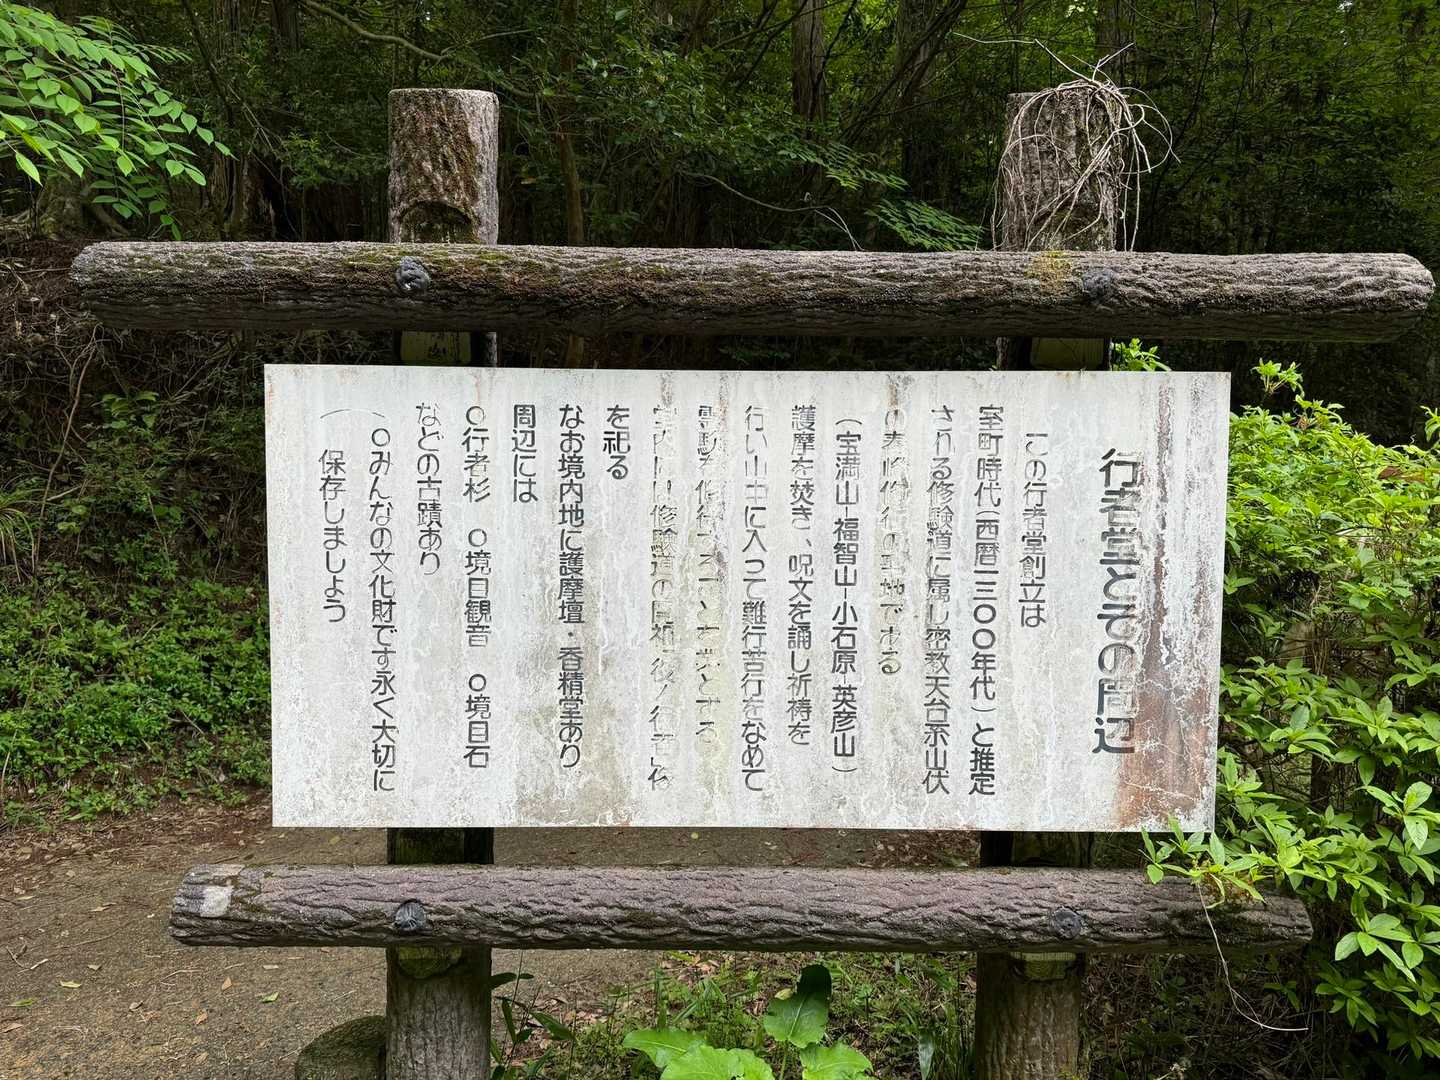 行者堂とその周辺
この行者堂創立は
室町時代(西暦一三〇〇年代)と推定
される修験道に属し密教天台系山伏
の春峰修行の聖地である
(宝満山-福智山-小石原-英彦山)
護摩を焚き、呪文を誦し祈祷を
行い山中に入って難行苦行をなめて
霊験を修得することを業とする
堂内には修験道の開祖「役ノ行者」像
を祀る
なお境内地に護摩壇・香精堂あり
周辺には
〇行者杉 〇境目観音 〇境目石
などの古蹟あり
(〇みんなの文化財です永く大切に
( 保存しましょう